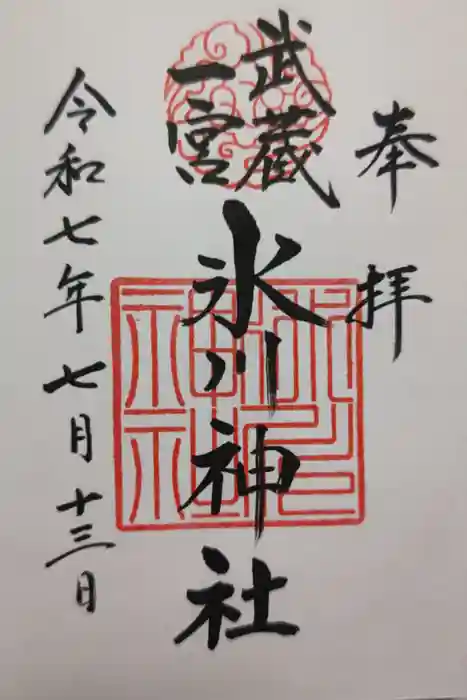 奉拝
武蔵
一宮
氷川神社
令和七年七月十三日
氷川
神社